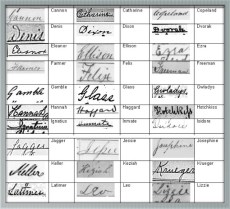 Cannon Cannon Catharine Catharine Copeland Copeland
Denis Denis Dixon Dixon Dvorak Dvorak
Eleanor Eleanor Ellison Ellison Ezra Ezra
Farmer Felix Felix Freeman
Gamble Gamble Glass Glass Gwladys Gwladys
Hannah Haggard Haggard Hotchkiss Hotchkiss
Ignatius Ignatius Inmate Inmate Isidore Isidore
Jagger Jagger Jessie Josephine Josephine
Keller Keller Keziah Keziah Krueger Krueger
Latimer Latimer Leo Leo Lizzie Lizzie